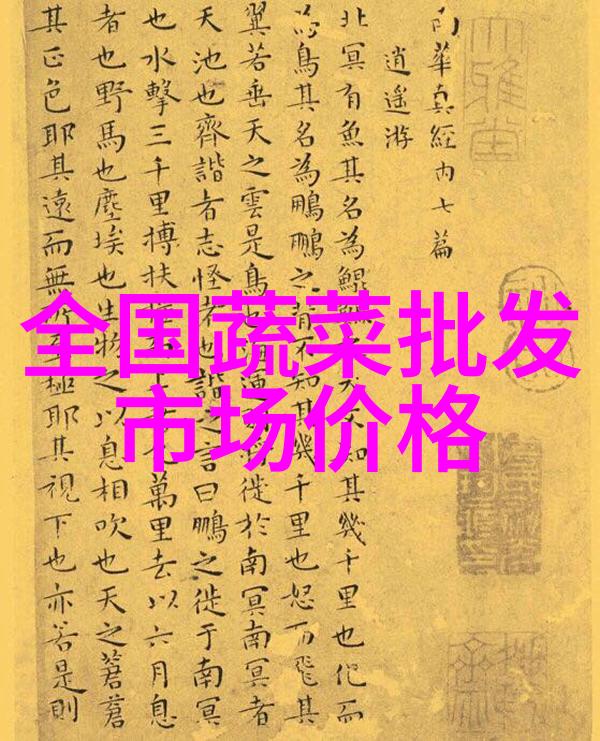 全国蔬菜批发
市场价格
南華真經内七篇
逍遥游
北冥有魚其名為鯤 知其幾千里也化而
為鳥其名為鵬鵬之背不知其幾千里也怒而飛其
翼若垂天之雲是鳥也 運 將徙於南冥南冥者
天池也齊諧者志怪者也諧之言曰鵬之徙于南冥
也水擊三千里搏扶 萬里去以六月息
者也野馬也塵埃也生物之以息相吹也天之蒼蒼
其正色耶其遠而無所至極耶其視下也亦若是則